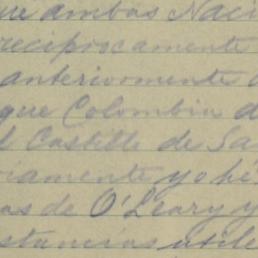 que ambas Naci
reciprocamente
anteriormente
que Colombia d
l Castillo de Sa
riamente yo hé
as de O'Leary y
stancias utile